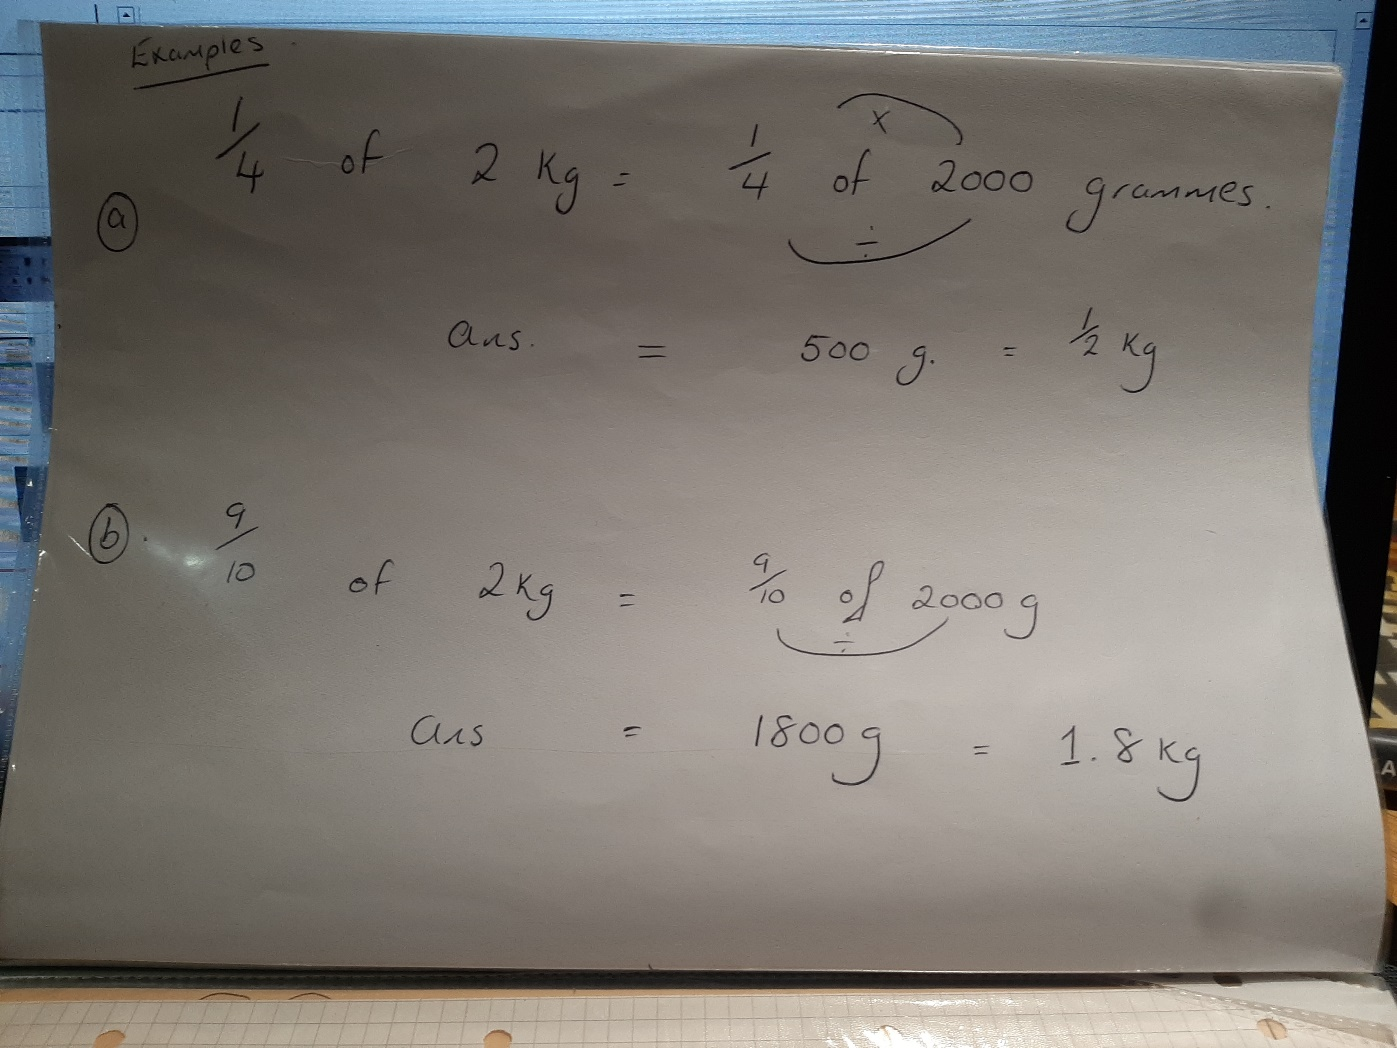 Examples.
1/4 of 2 Kg = 1/4 of 2000 grammes.
×
÷
(a)
ans. = 500 g. = 1/2 Kg
(b). 9/10 of 2Kg = 9/10 of 2000g
÷
ans = 1800g = 1.8 Kg
A